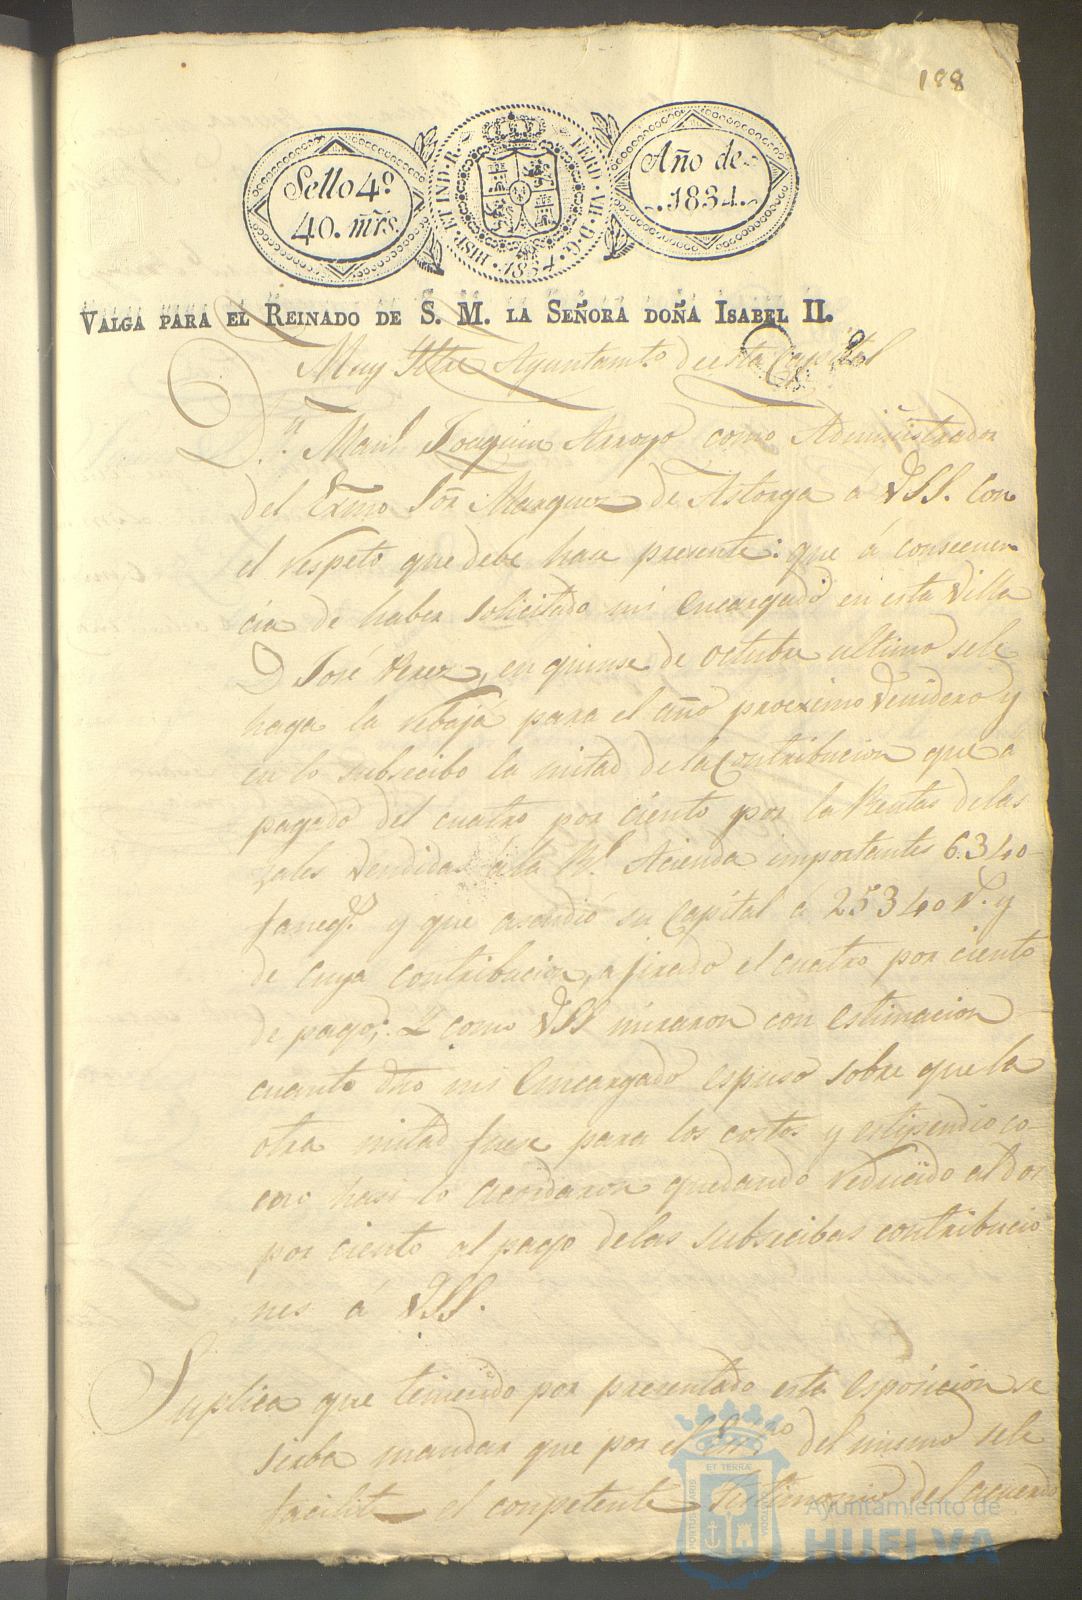 188
Sello 4º
40. mrs.
HISP. ET IND. R.
FERD. VII. D. G.
1834
Año de
1834.
VALGA PARA EL REINADO DE S. M. LA SEÑORA DOÑA ISABEL II.
Muy Iltre Ayuntamto de esta Capital
Dn. Manl. Joaquin Arroyo como Administrador
del Exmo Sor. Marques de Astorga á VSS. con
el respeto que debe hase presente: que á consecuen
cia de haber solicitado mi encargado en esta Villa
D José Perez, en quinse de octubre ultimo sele
haga la rebaja para el año procximo Venidero y
en lo subsecibo la mitad de la contribucion que á
pagado del cuatro por ciento por la Rentas delas
sales Vendidas á la Rl. Acienda importantes 6340
faneqs. y que asendio su Capital á 25340 r. y
de cuya contribucion, a jirado el cuatro por ciento
de pago; Y como VSS miraron con estimacion
cuanto dho mi Encargado espuso sobre que la
otra mitad fuese para los costos y estipendio co-
mo hasi lo acordaron quedando reducido al dos
por ciento al pago delas subsecibas contribucio
nes á VSS.
Suplica que teniendo por presentado esta esposicion se
sirba mandar que por el Srio del mismo sele
facilite el conpetente Testimonio del acuerdo
PORTUS MARIS
ET TERRÆ
CUSTODIA
Ayuntamiento de
HUELVA